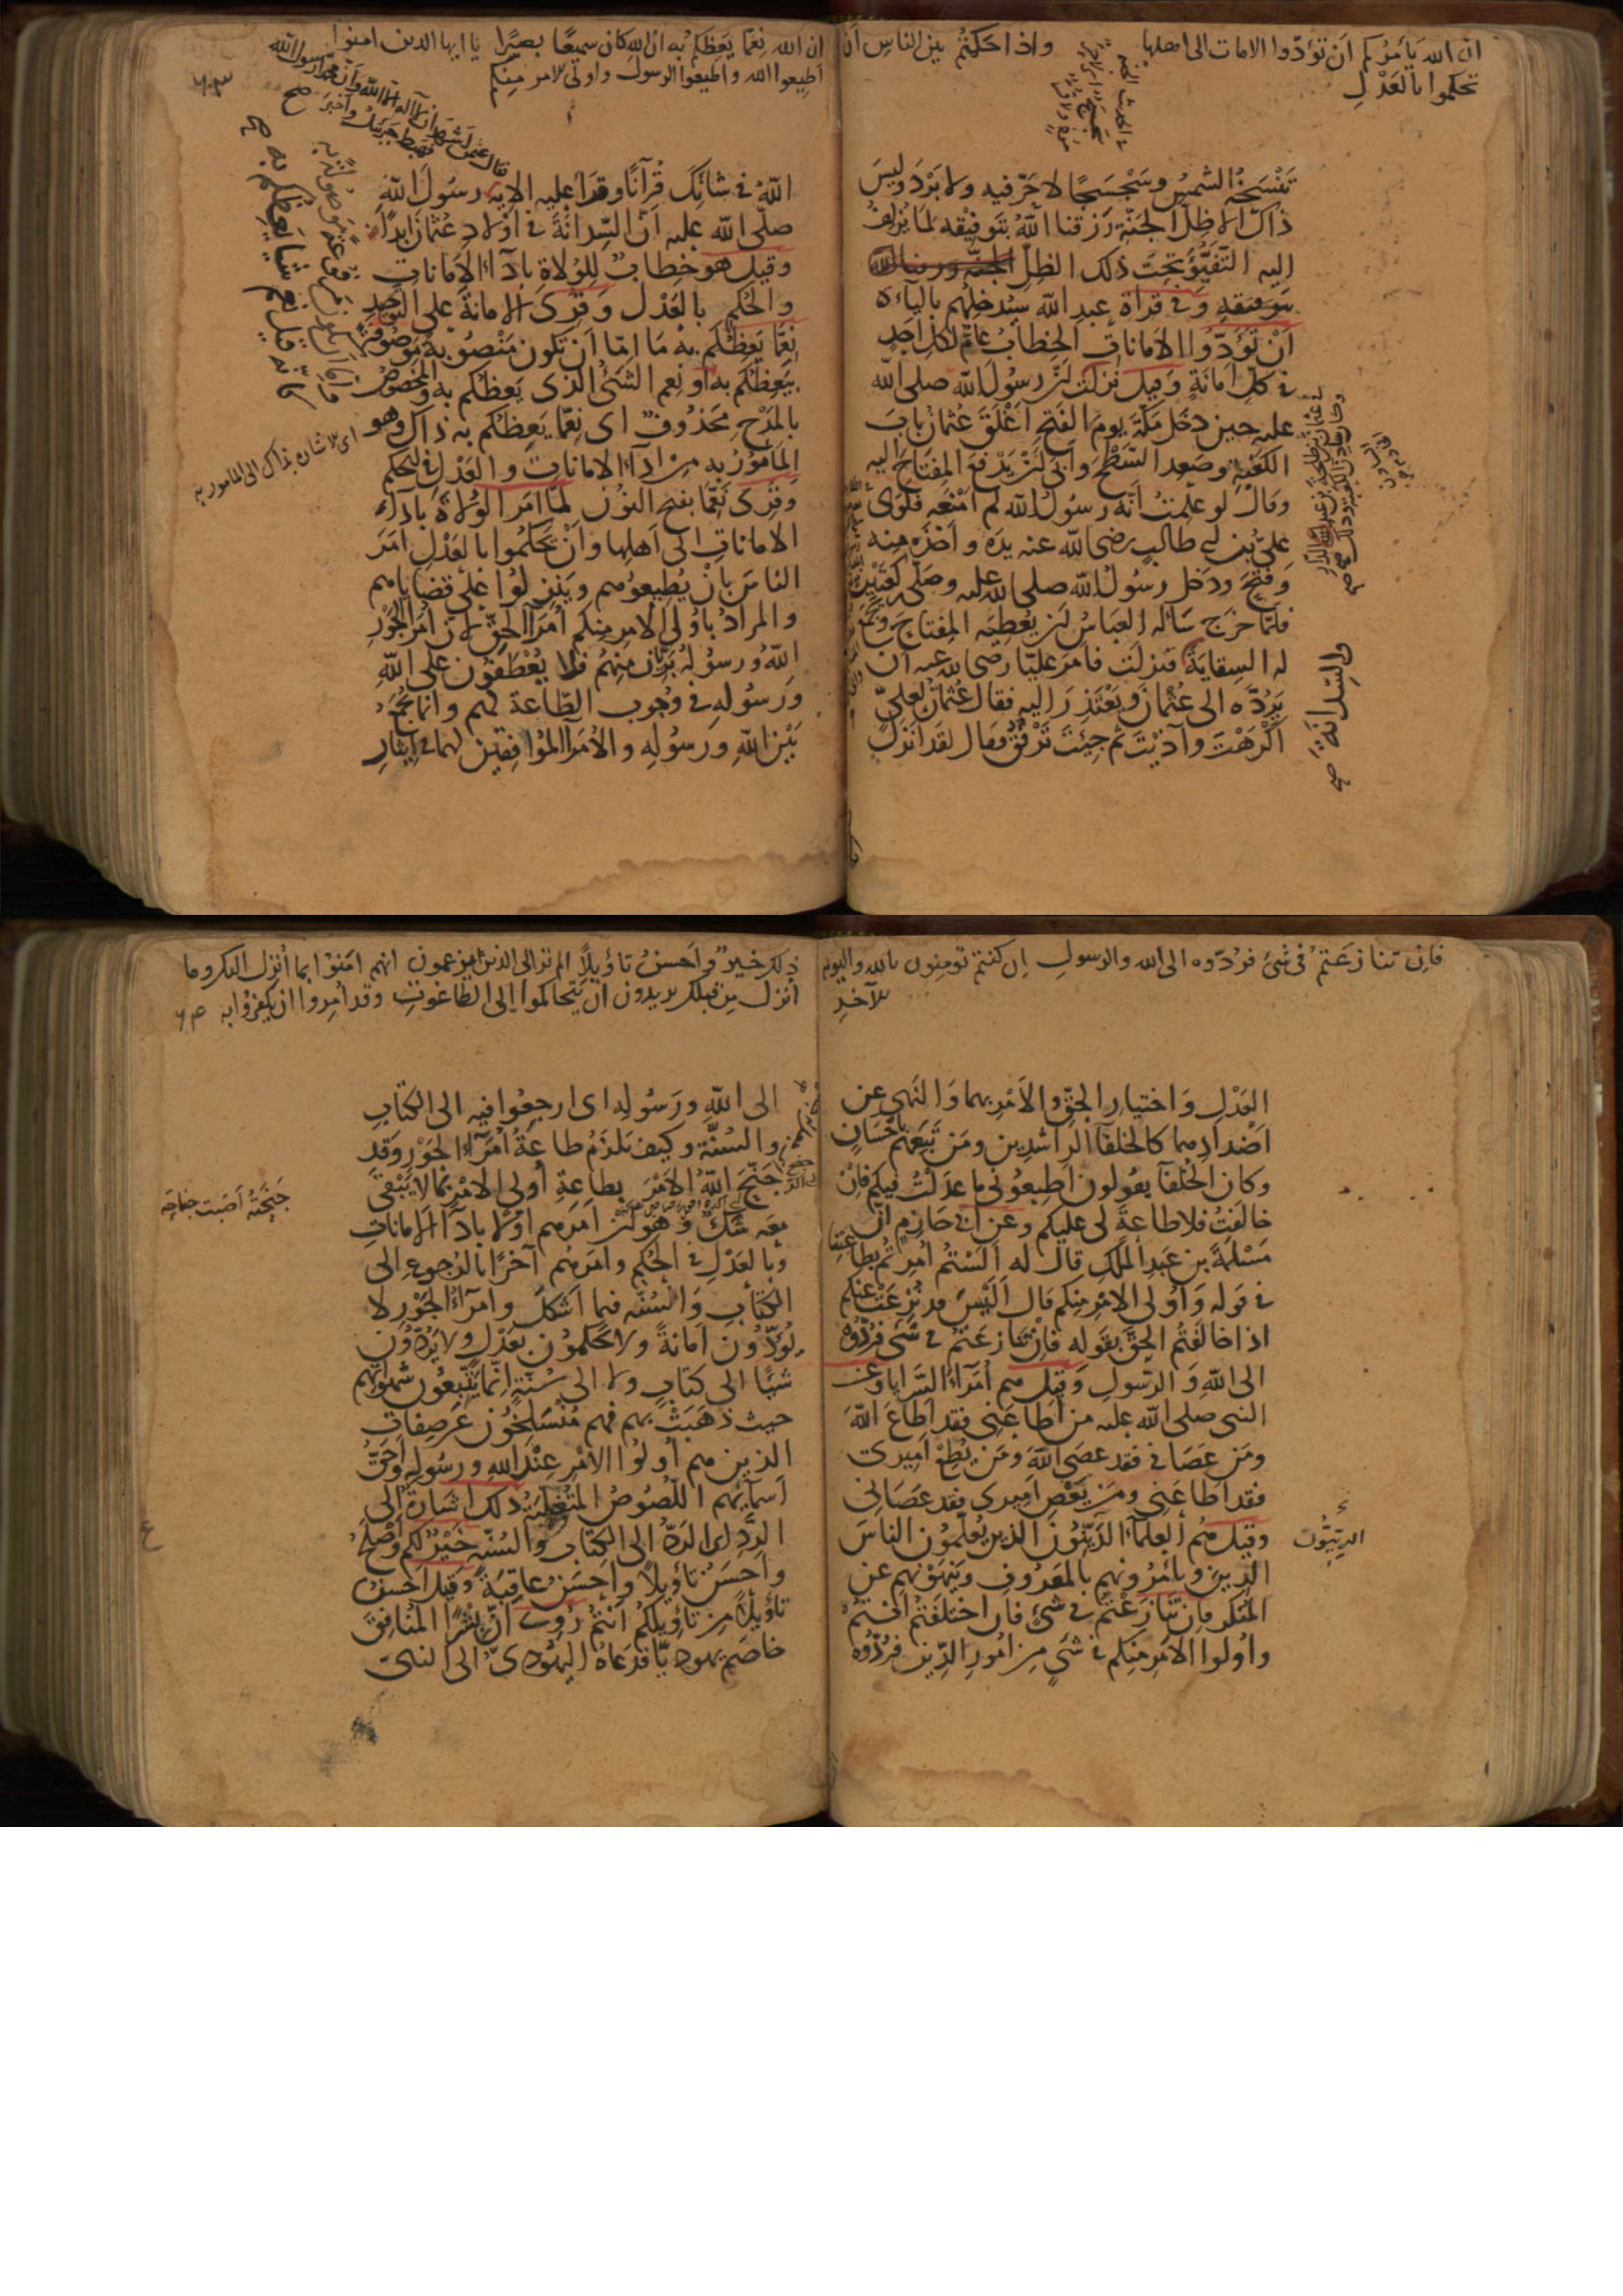 ان الله يأمركم أن تؤدّوا الامانات الى اهلها واذا حكمتم بين الناس أن
تحكموا بالعَدْلِ
تَنْسَخُه الشمسُ وسَجْسَجًا لا حَرّ فيه ولا بَرْدَ وليسَ
ذاك الا ظِلّ الجنّة رَزقنا اللهُ بتَوفيقه لمَا يُزلِفُ
اليه التَفَيُّؤ تحتَ ذلك الظلّ
وفى قراة عبد الله سيُدخِلُهم بالياء
أنْ تُؤَدّوا الأمَاناتِ الخِطابُ عامّ لكلّ اَحَدٍ
فى كلّ امَانةٍ وقيل نزلَتْ لنّ رسُولَ الله صلى الله
عليه حين دخل مكّةَ يومَ الفَتحِ اَغْلَقَ عُثمانُ بابَ
الكعْبَةِ وصَعِد السَّطْحَ وأبَى لنْ يَدْفعَ المِفتاحَ اليه
وقال لو علمتُ أنّه رسُولُ الله لم اَمْنَعْه فلَوَى
علىّ بن ابى طالبٍ رضى الله عنه يدَه وأخَذه منه
وفتَحَ ودخل رسُولُ الله صلى الله عليه وصَلّى ركعتَيْن
فلمّا خرَج سَأله العباسُ لنْ يُعْطِيَه المِفتاحَ ويَجْمَع
له السِقايَةَ فنزلت فأمَر عليًّا رضى الله عنه أن
يَرُدَّه الى عُثمانَ ويَعْتَذِرَ اليه فقال عُثمانُ لعلىّ
اَكْرَهْتَ وآذيْتَ ثم جئِتَ تَرْفُقُ فقال لقد أنزل
والسِدانَة صح
ان الله نِعمّا يَعِظكم به ان الله كان سميعًا بصيرًا يا ايها الذين امنوا
اَطِيعوا الله واطيعوا الرسول واولى الامر منكم
قال عثمن اَشهدُ ان لا اله الا الله وأن محمدا رسول الله
فهبط جبريل وأخبَر صح
اللهُ فى شانِكَ قُرآنًا وقَرَا عليه الاية رسُولَ الله
صلّى الله عليه أن السِدانَةَ فى اَوْلادِ عُثمانَ اَبدًا
وقيل هو خِطابٌ لِلوُلاةِ بادَآء الأمَاناتِ
والحُكمِ بالعَدْل وقرى الامانة على التَوحيد
نِعِمّا يَعِظُكم به مَا امّا أن تكون مَنْصُوبَةً مَوصُوفةً
بيَعِظُكم به أو نِعم الشئُ الذى يَعِظكم به والمخصُوصُ
بالمَدْح محذوفٌ اى نِعِمّا يَعِظُكم به ذاك وهو
المأمُورُ به من ادَآءِ الامَاناتِ والعَدْلِ فى الحكم
وقرى نَعِمّا بفتح النون لمّا اَمَر الوُلاةَ بادآء
الاماناتِ الى اَهلِها وأنْ يَحْكُمُوا بالعَدْلِ اَمَرَ
الناسَ بأنْ يُطيعُوهم ويَنزِلوُا على قضاياهم
والمرادُ باُولى الامر منكم اُمَرآءُ الحَقِّ لان اُمَراءَ الجَوْرِ
اللهُ ورسُولُه بَرِيآن مِنهُم فلا يُعْطَفُونَ على اللهِ
ورَسُولِه فى وُجوب الطّاعة لهم وانما يُجمَعُ
بَيْنَ اللهِ ورسُولِه والأمَرآءِ المُوَافِقِين لهما فى ايثارِ
اى الاشارة بذاك الى المامور به
فان تنازعتم فى شئ فردّوه الى الله والرسول ان كنتم تومنون بالله واليوم
الآخر
العَدْلِ وَاختيارِ الحقّ والأمْرِ بهما وَالنَهى عن
اَضْدادِهما كالخلفآ الراشِدِين ومَن تَبِعَهم باحْسَانٍ
وكان الخلفآ يقولون اَطيعُونى ما عَدَلْتُ فيكم فإنْ
خالَفْتُ فلا طاعةَ لى عليكم وعن ابى حَازِمٍ أنّ
مَسْلَمةَ بن عَبدِ المَلكِ قال له اَلَسْتُم اُمِرتُم بطاعتِنا
فى قوله وَاُولى الامْرِ منِكم قال اَلَيْسَ قد نُزعَتْ عنكم
اذا خالَفْتُم الحَقَّ بقوله فإنْ تَنازَعْتُم فى شَئ فَرُدّوه
الى اللهِ وَالرّسولِ وَقيل هم اُمَرآءُ السَّرايا وعن
النبى صلى الله عليه من اَطاعَنى فقد اَطاعَ اللهَ
ومَنْ عَصَانى فقد عصَى اللهَ ومَن يُطِعْ اَمِيرى
فقد اَطاعَنى ومَن يَعْصِ اَميرى فقد عَصَانى
وقيل هُم العلمآءُ الدَيِّنُونَ الذين يُعلّمُون الناسَ
الدِينَ ويأمُرُونهم بالمَعرُوف ويَنهَوْنهم عن
المُنكر فان تنازَعْتُم فى شئٍ فان اختَلَفتُم انتُم
واُولوا الأمرِ منكم فى شَىءٍ من اُمُورِ الدّين فرُدُّوه
الدَيِّنُون
ذلك خيرٌ وأحسنُ تاؤيلًا الم تر الى الذين يزعمون انهم امنوا بما اُنزل اليك وما
اُنزل من قبلك يريدون ان يتحاكموا الى الطاغوت وقد اُمِروا ان يكفروا به
الى اللهِ ورَسُولِه اى ارجعُوا فيه الى الكتابِ
والسُنّةِ وكيف تلزَمُ طاعَةُ اُمَرَآءِ الجَوْرِ وقد
جَنّحَ اللهُ الأمْرَ بطاعةِ اُولى الامْر بما لا يَبْقَى
معَه شَكٌ وَهُو لنْ اَمَرهم اوّلا بادَآءِ الأماناتِ
وبالعَدْلِ فى الحُكم وامَرهُم آخرًا بالرجوعِ الى
الكتابِ وَالسُنّه فيما اَشكلَ واُمرَآءُ الجَوْرِ لا
يُؤدّونَ اَمانةً ولا يَحكمُونَ بعَدْلٍ ولا يَرُدّونَ
شيًا الى كتابٍ ولا الى سُنّةٍ انّما يَتّبعُون شَهَواتِهم
حيث ذَهَبَتْ بهم فهم مُنْسَلخُون عن صِفاتِ
الذين هم اُولُوا الامْرِ عِنْد اللهِ ورسُولِه واَحَقُّ
اَسمآئِهم اللّصُوصُ المُتَغلّبَةُ ذلك اشارةٌ الى
الردِّ اى الردُّ الى الكتاب والسُنّةِ خَيْرٌ لكم واَصْلَحُ
وأحسَنُ تأوِيلًا وأحسَنُ عاقِبَةً وقيل اَحسنُ
تأوِيلًا من تأويلِكم اَنتُم رُوِىَ أنّ بِشْرًا المُنافِقَ
خاصَم يهودِيًّا فدَعاه اليَهُودِىّ الى النبىّ
جَنّحتُه اَصَبت جناحَه